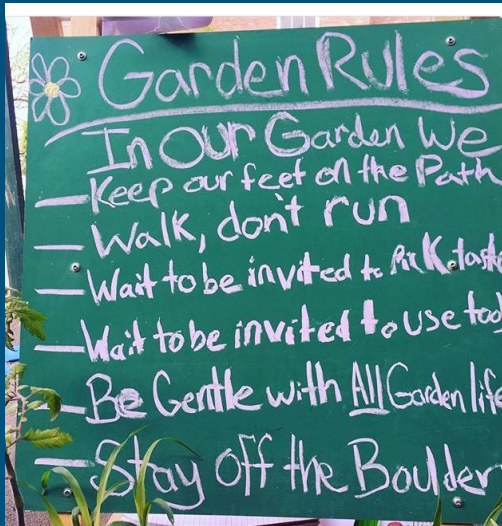 Garden Rules
In Our Garden We
– Keep our feet on the Path
– Walk, don't run
– Wait to be invited to Pick, taste
– Wait to be invited to use too
– Be Gentle with All Garden life
– Stay off the Boulder